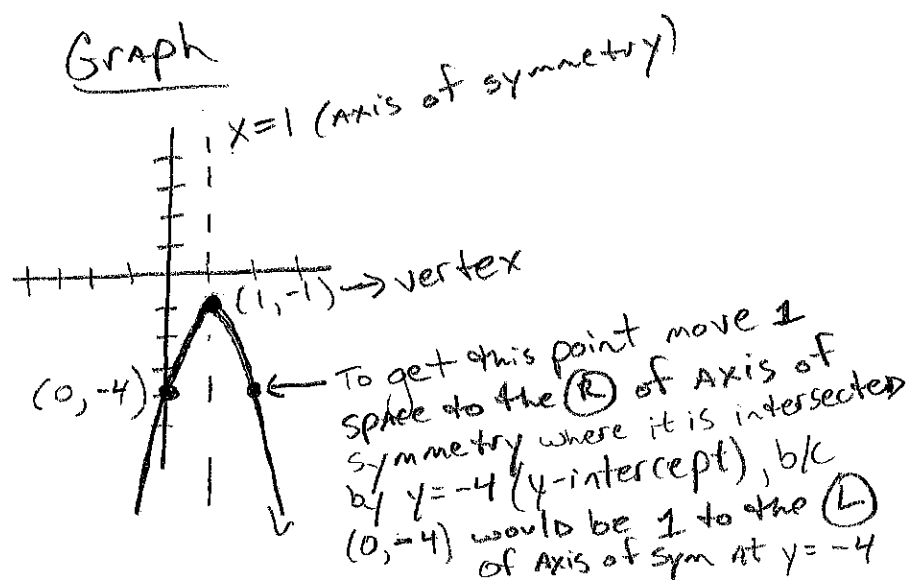 Graph
x=1 (Axis of symmetry)
(1,-1) → vertex
(0,-4)
← To get this point move 1
space to the R of Axis of
symmetry where it is intersected
by y=-4 (y-intercept), b/c
(0,-4) would be 1 to the L
of Axis of Sym At y=-4